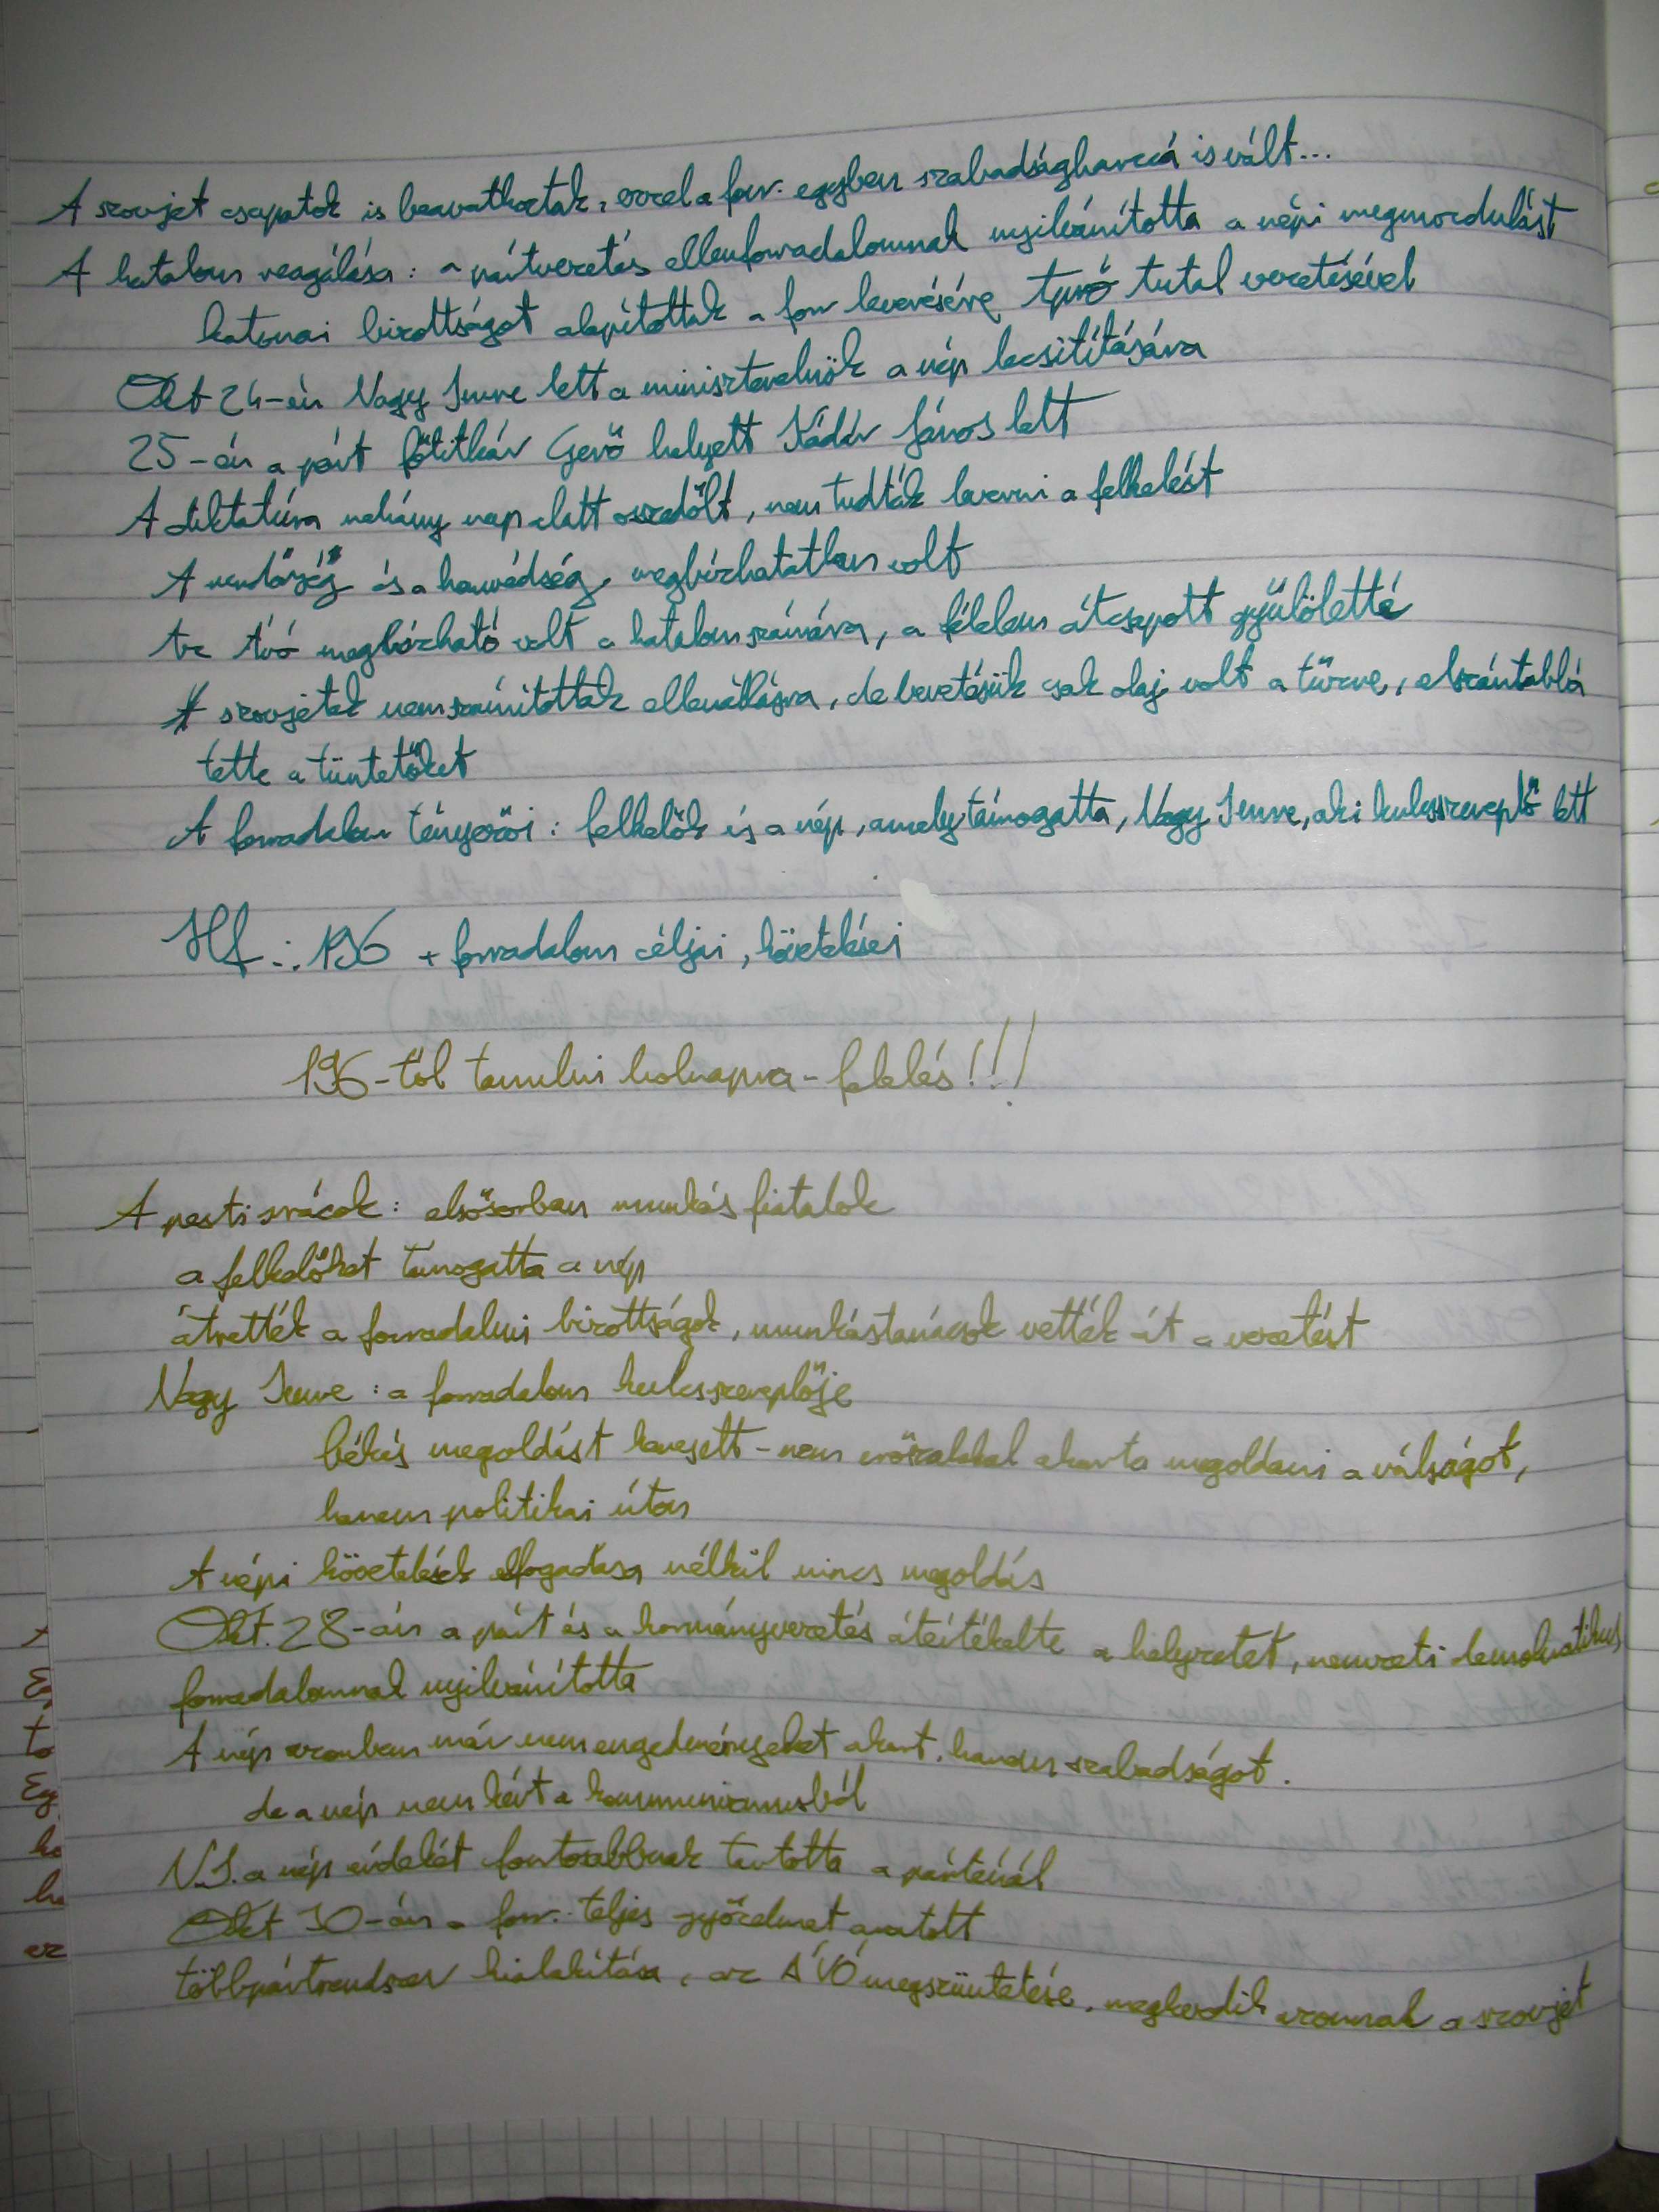 A szovjet csapatok is beavatkoztak, ezzel a forr. egyben szabadságharccá is vált...
A hatalom reagálása: a pártvezetés ellenforradalomnak nyilvánította a népi megmozdulást
katonai bizottságot alapítottak a forr leverésére, teljhatalmú vezetésével
Okt 24-én Nagy Imre lett a miniszterelnök a nép lecsitítására
25-én a párt főtitkár Gerő helyett Kádár János lett
A diktatúra néhány nap alatt összedőlt, nem tudták leverni a felkelést
A rendőrség és a honvédség megbízhatatlan volt
Az ÁVÓ megbízható volt a hatalom számára, a félelem átcsapott gyűlöletté
A szovjetek nem számítottak ellenállásra, de bevetésük csak olaj volt a tűzre, elszántabbá
tette a tüntetőket
A forradalom tényezői: felkelők és a nép, amely támogatta, Nagy Imre, aki kulcsszereplő lett
Hf.: 1956 + forradalom céljai, követelései
1956-tól tanulni holnapra - felelés!!!
A pesti srácok: elsősorban munkás fiatalok
a felkelőket támogatta a nép
átvették a forradalmi bizottságok, munkástanácsok vették át a vezetést
Nagy Imre: a forradalom kulcsszereplője
békés megoldást keresett - nem erőszakkal akarta megoldani a válságot,
hanem politikai úton
A népi követelések elfogadása nélkül nincs megoldás
Okt. 28-án a párt és a kormányvezetés átértékelte a helyzetet, nemzeti demokratikus
forradalomnak nyilvánította
A nép azonban már nem engedményeket akart, hanem szabadságot.
de a nép nem kért a kommunizmusból
N.I. a nép érdekét fontosabbnak tartotta a párténál
Okt 30-án a forr. teljes győzelmet aratott
többpártrendszer kialakítása, az ÁVÓ megszüntetése, megkezdik azonnal a szovjet